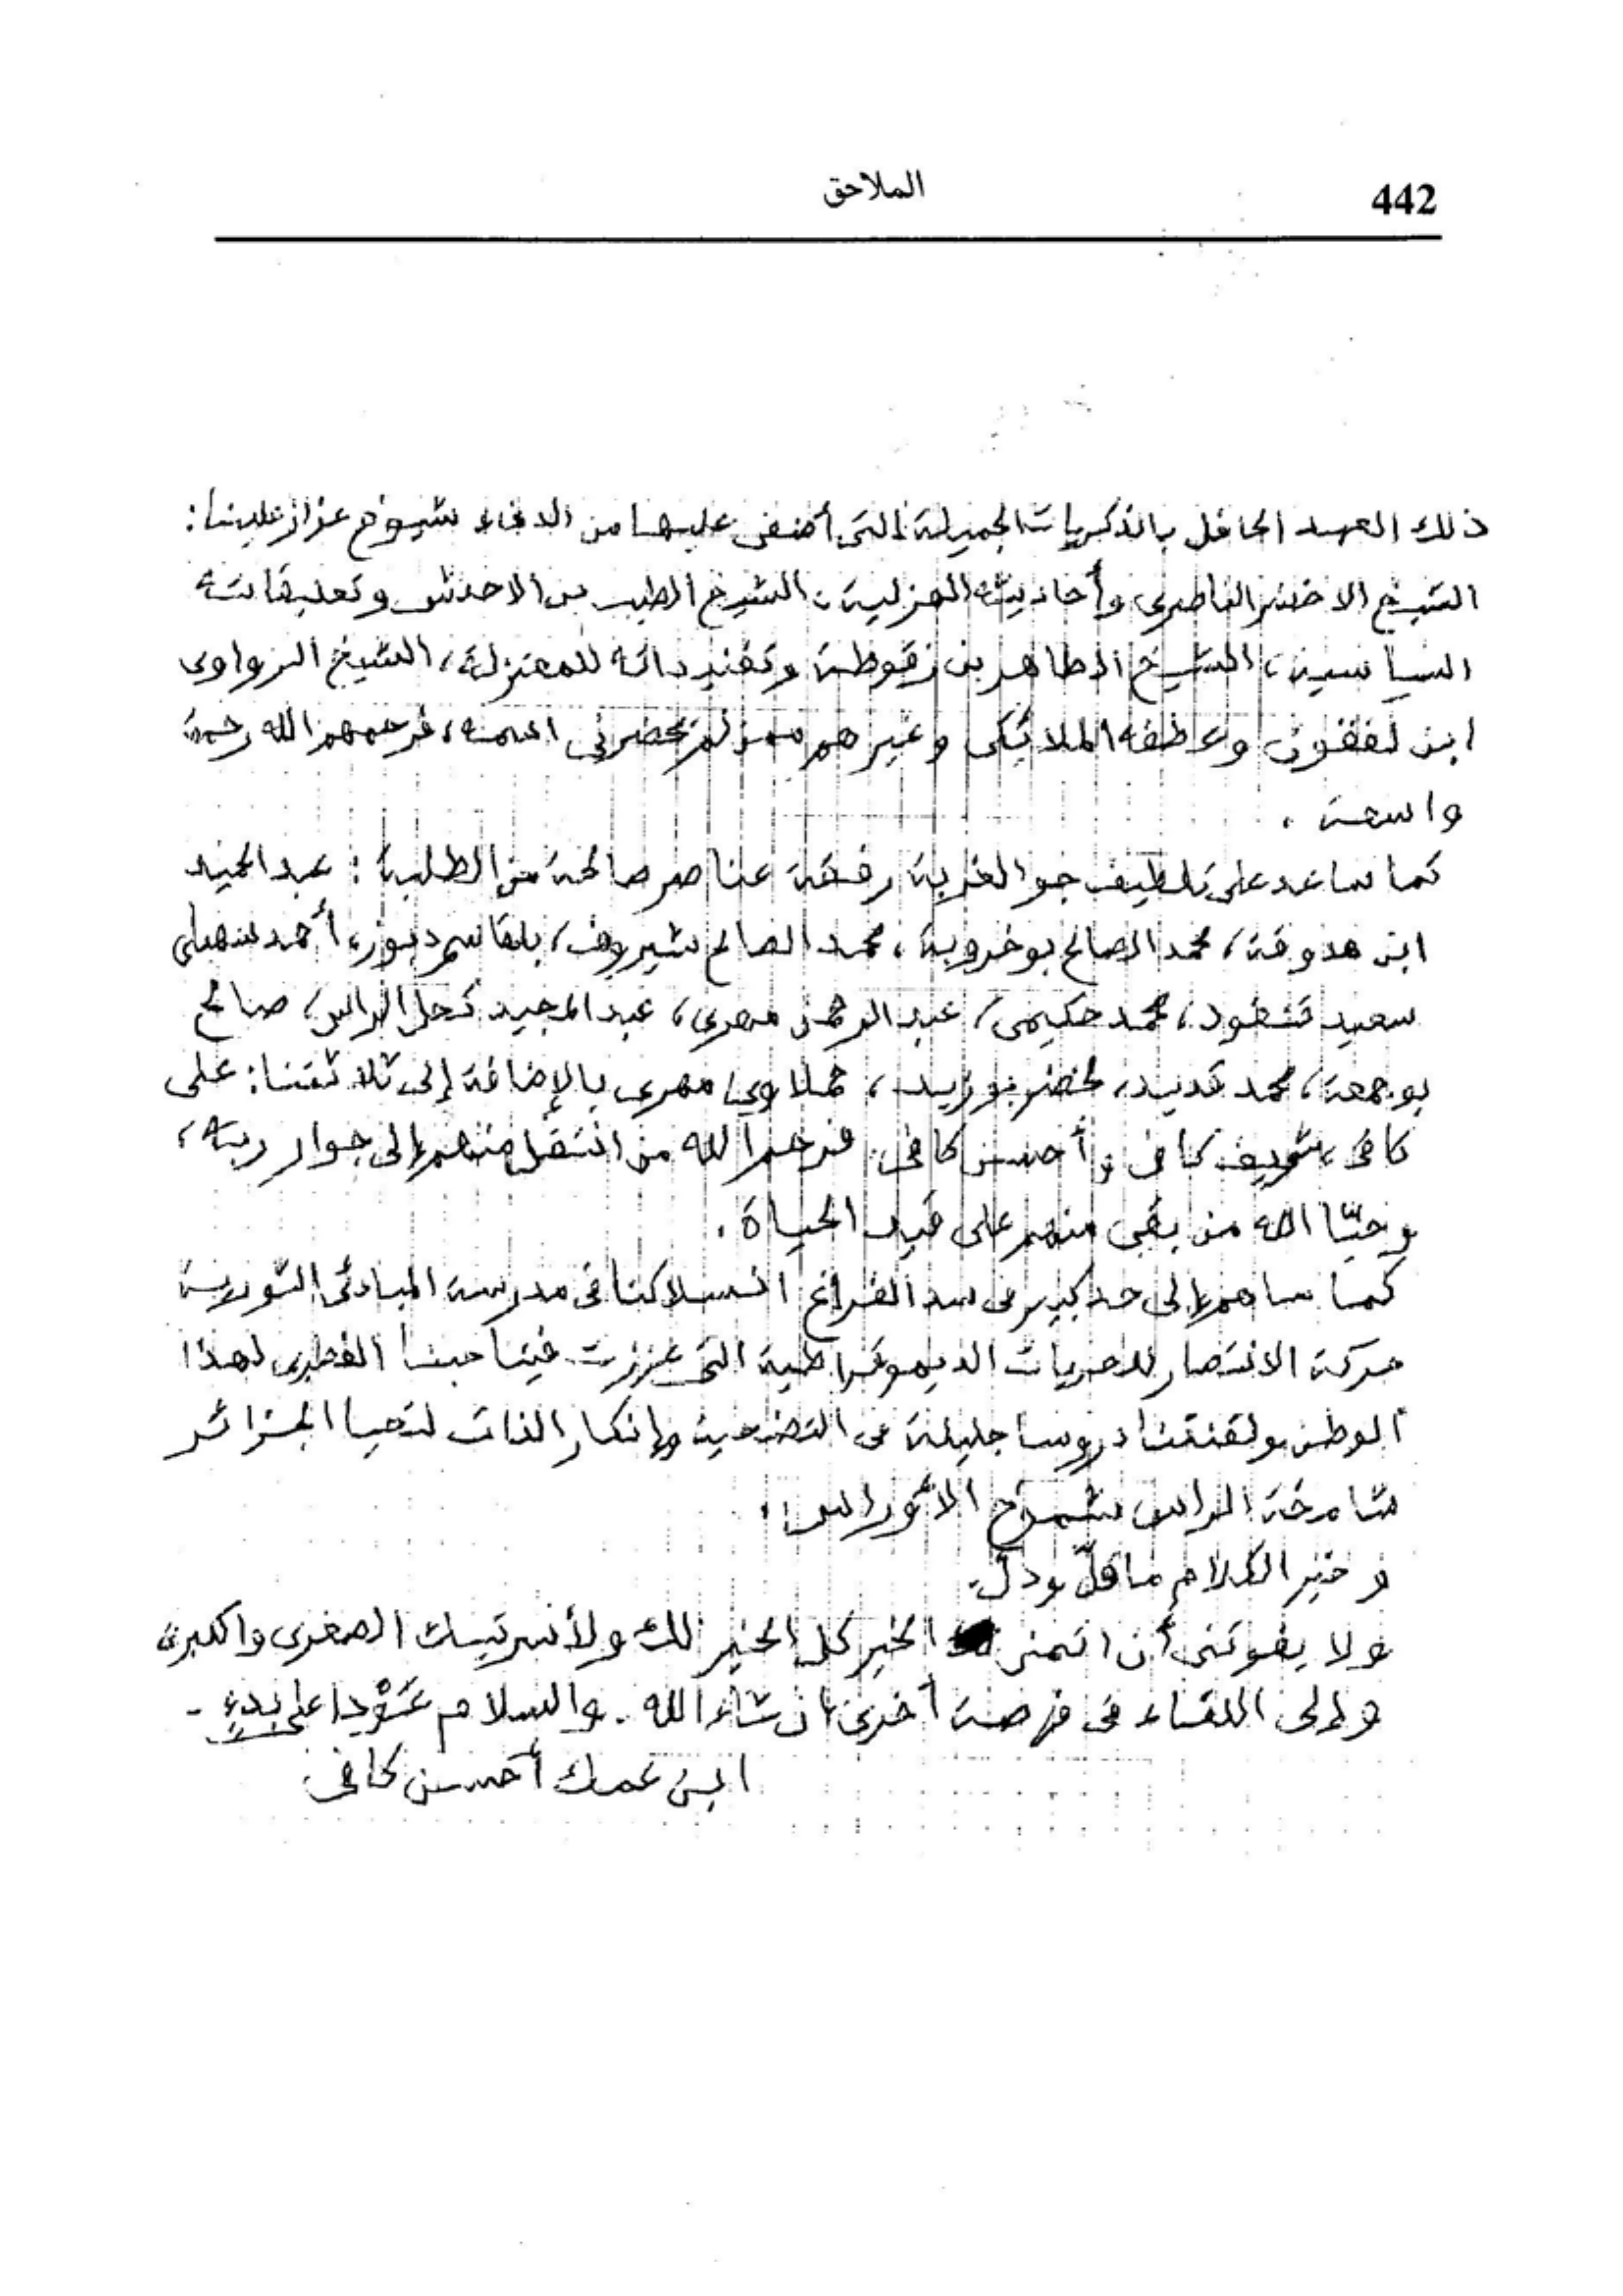 442
الملاحق
ذلك العهد الحافل بالذكريات الجميلة التي أضفى عليها من الدفء شيوخ عزاز علينا:
الشيخ الاخضر الناصري وأحاديثه الهزلية، الشيخ الطيب بن الاحدش وتعليقاته
السياسية، الشيخ الطاهر بن زقوطة وتفنيداته للمعتزلة، الشيخ الزواوي
ابن لفقون وعطفه الملائكي وغيرهم ممن لم تحضرني اسمه، فرحمهم الله رحمة
واسعة.
كما ساعد على تلطيف جو الغربة رفقة عناصر صالحة من الطلبة: عبد الحميد
ابن هدوقة، محمد الصالح بوخروبة، محمد الصالح شيروف، بلقاسم دبوز، أحمد
سعيد، محمد حكيمي، عبد الرحمن مهري، عبد المجيد كحل الراس، صالح
بوجمعة، محمد قديد، لخضر بوزيد، حملاوي مهري بالإضافة إلى ثلاثتنا: علي
كافي، شريف كافي و أحسن كافي. فرحم الله من انتقل منهم إلى جوار ربه،
وحيّا الله من بقي منهم على قيد الحياة.
كما ساهم إلى حد كبير في سد الفراغ انسلاكنا في مدرسة المبادئ الثورية
حركة الانتصار للحريات الديموقراطية التي عززت فينا حبنا الفطري لهذا
الوطن ولقنتنا دروسا جليلة في التضحية وإنكار الذات لتحيا الجزائر
شامخة الراس شموخ الأوراس.
و خير الكلام ما قلّ ودلّ.
ولا يفوتني أن اتمنى الخير كل الخير لك ولأسرتيك الصغرى والكبرى
وإلى اللقاء في فرصة أخرى ان شاء الله. والسلام عَوْدا على بدءٍ.
ابن عمك أحسن كافي